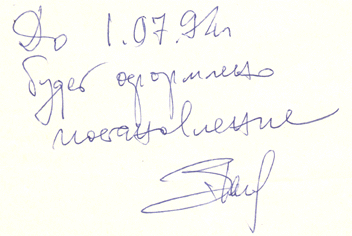 До 1.07.94г
будет оформлено
постановление